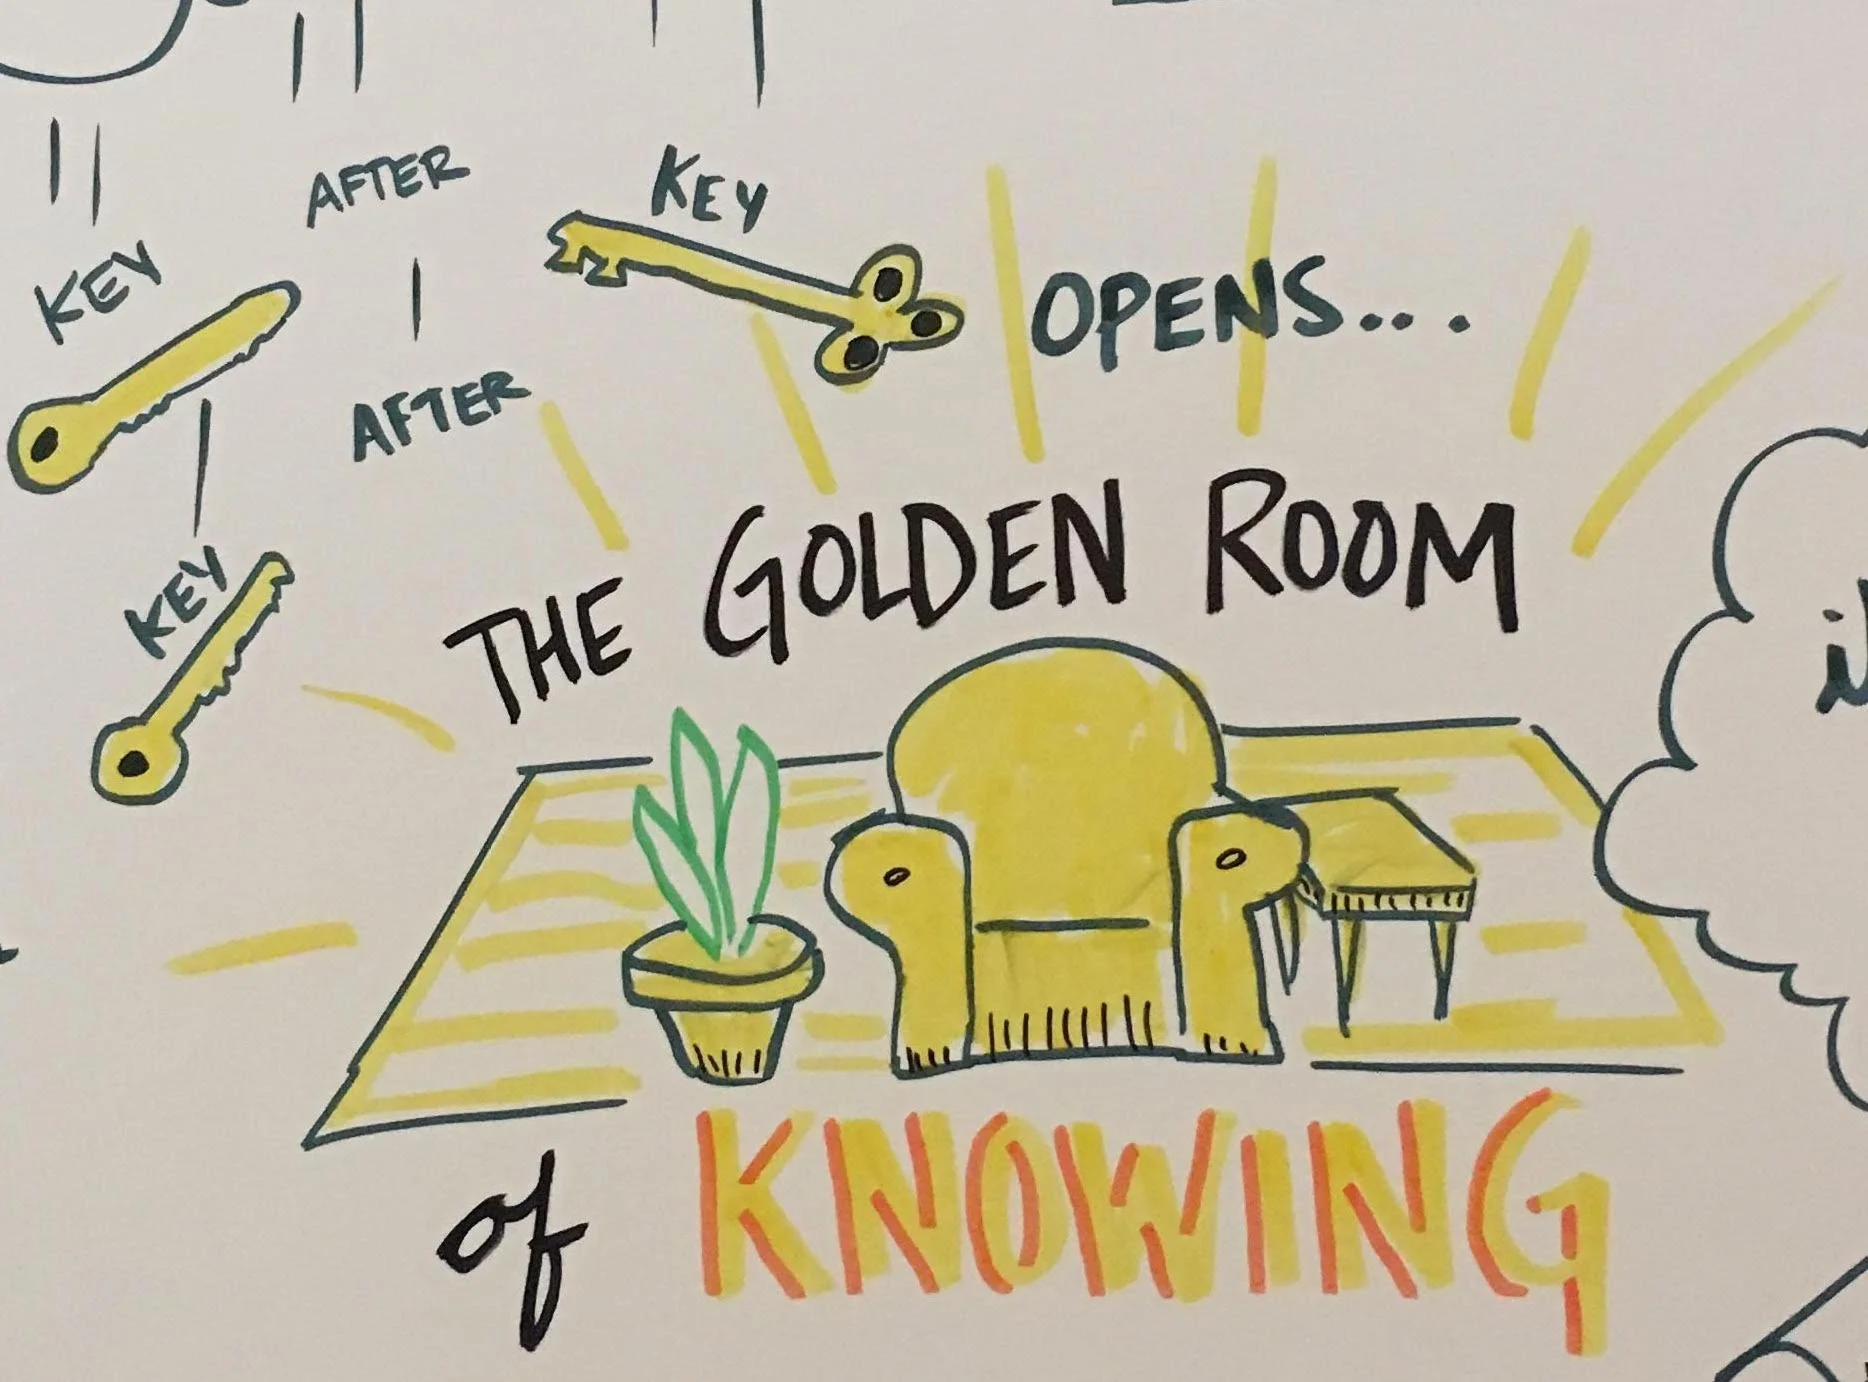 KEY
AFTER
KEY
AFTER
KEY
OPENS...
THE GOLDEN ROOM
of KNOWING